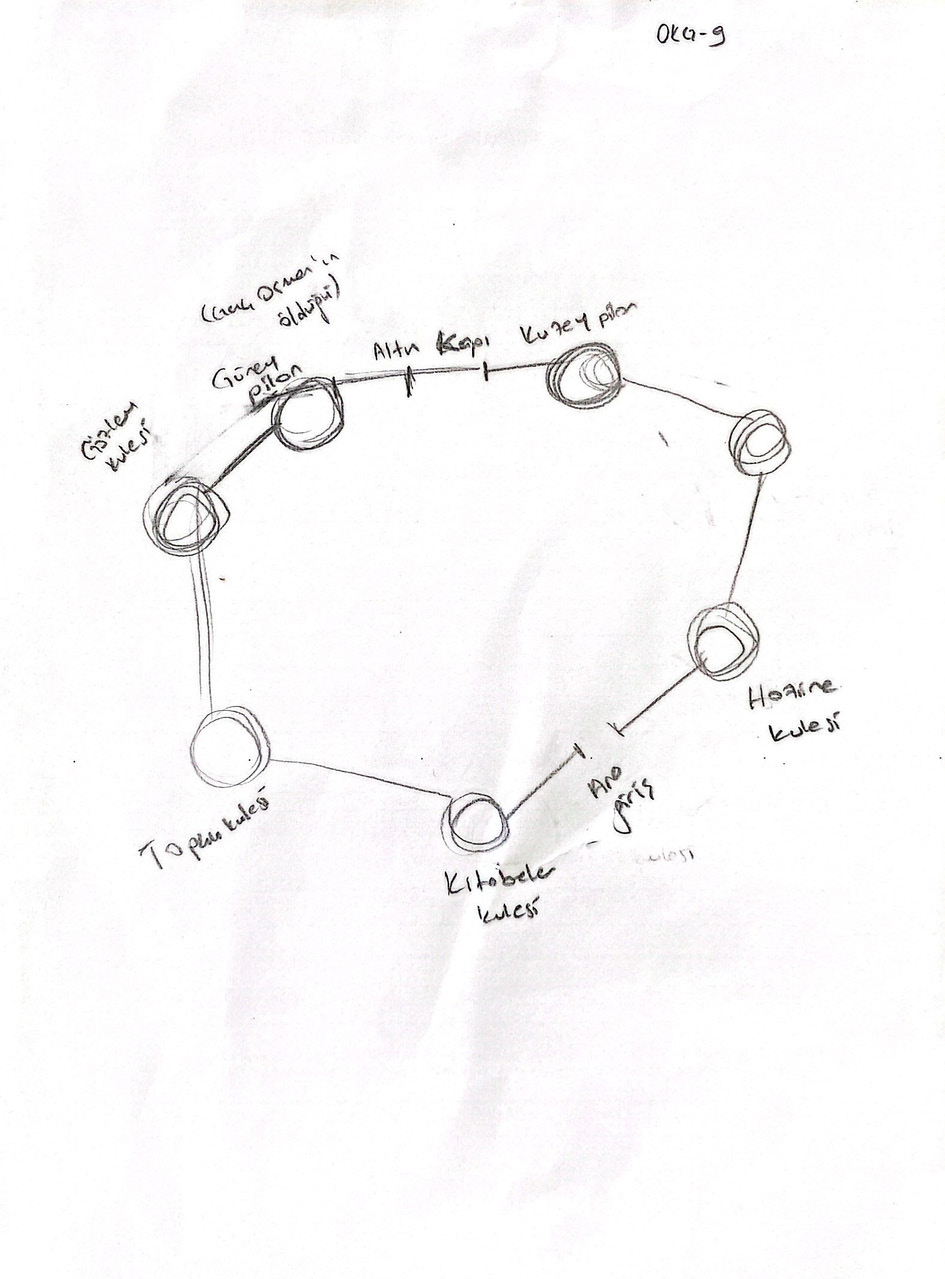 OKG-9
(Genç Osman'ın
öldüğü)
Güney
pilon
Altın Kapı
Kuzey pilon
Gözlem
kulesi
Hazine
kulesi
Ana
giriş
Top kulesi
Kitabeler
kulesi
kulesi